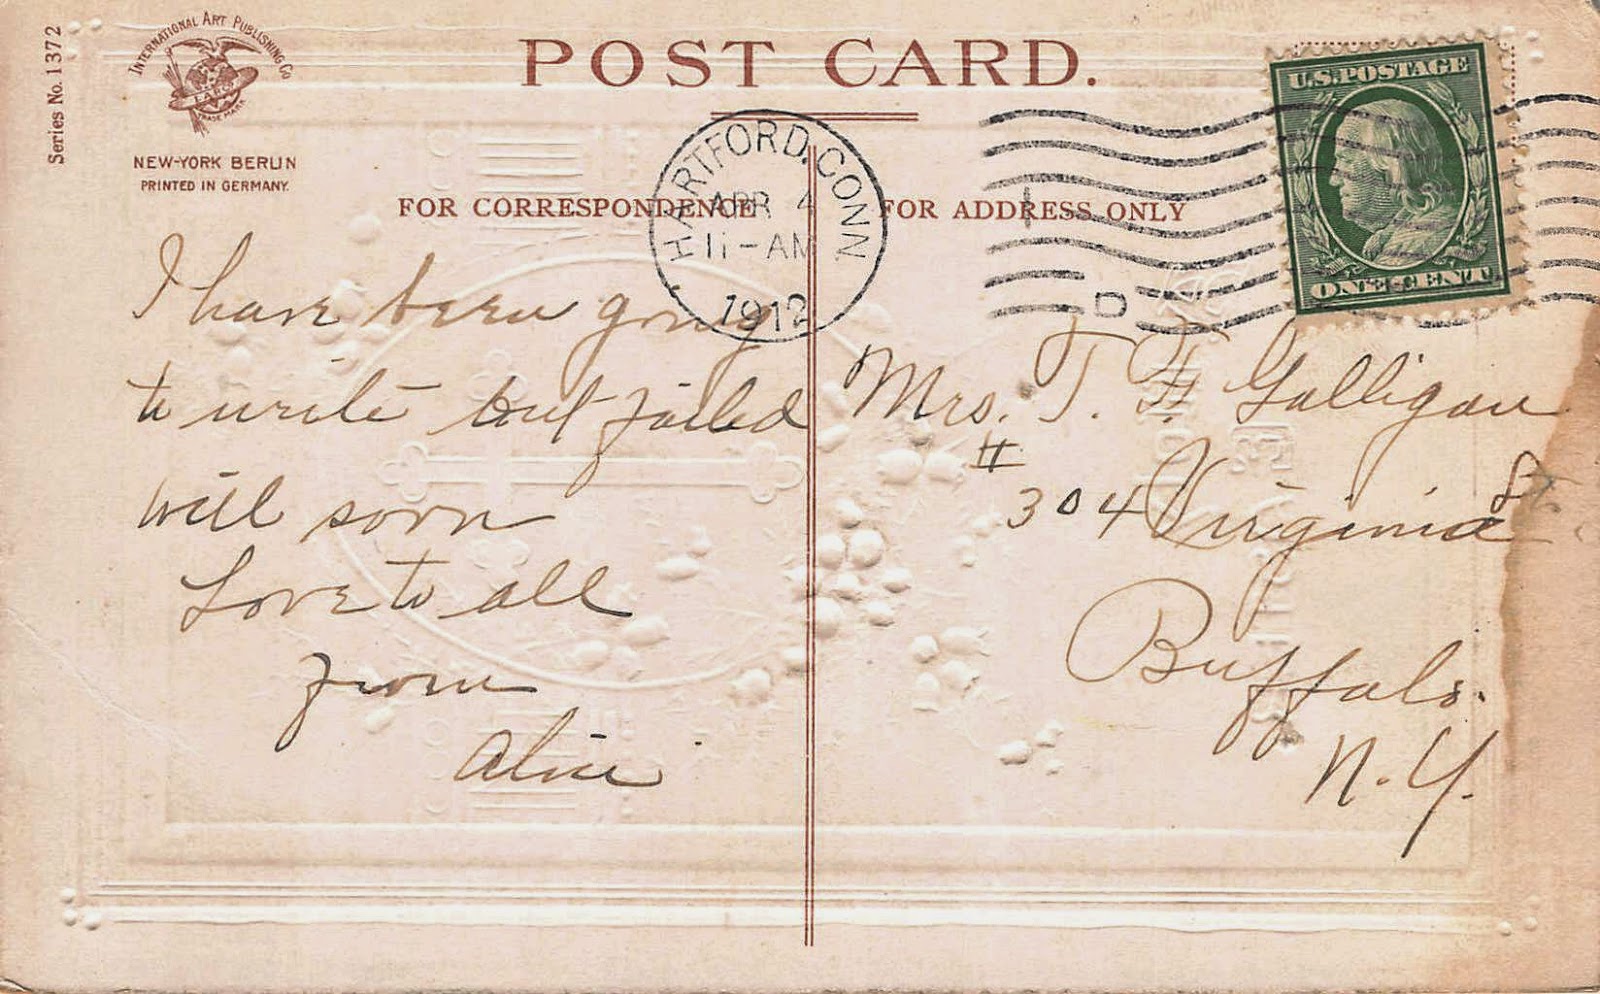 Series No. 1372
INTERNATIONAL ART PUBLISHING CO
TRADE MARK
NEW-YORK BERLIN
PRINTED IN GERMANY.
POST CARD.
HARTFORD, CONN.
APR 4
11-AM
1912
D
U.S. POSTAGE
ONE CENT
FOR CORRESPONDENCE
I have been going
to write but failed
will soon
Love to all
from
Alice
FOR ADDRESS ONLY
Mrs. T. F. Galligan
# 304 Virginia St
Buffalo.
N.Y.